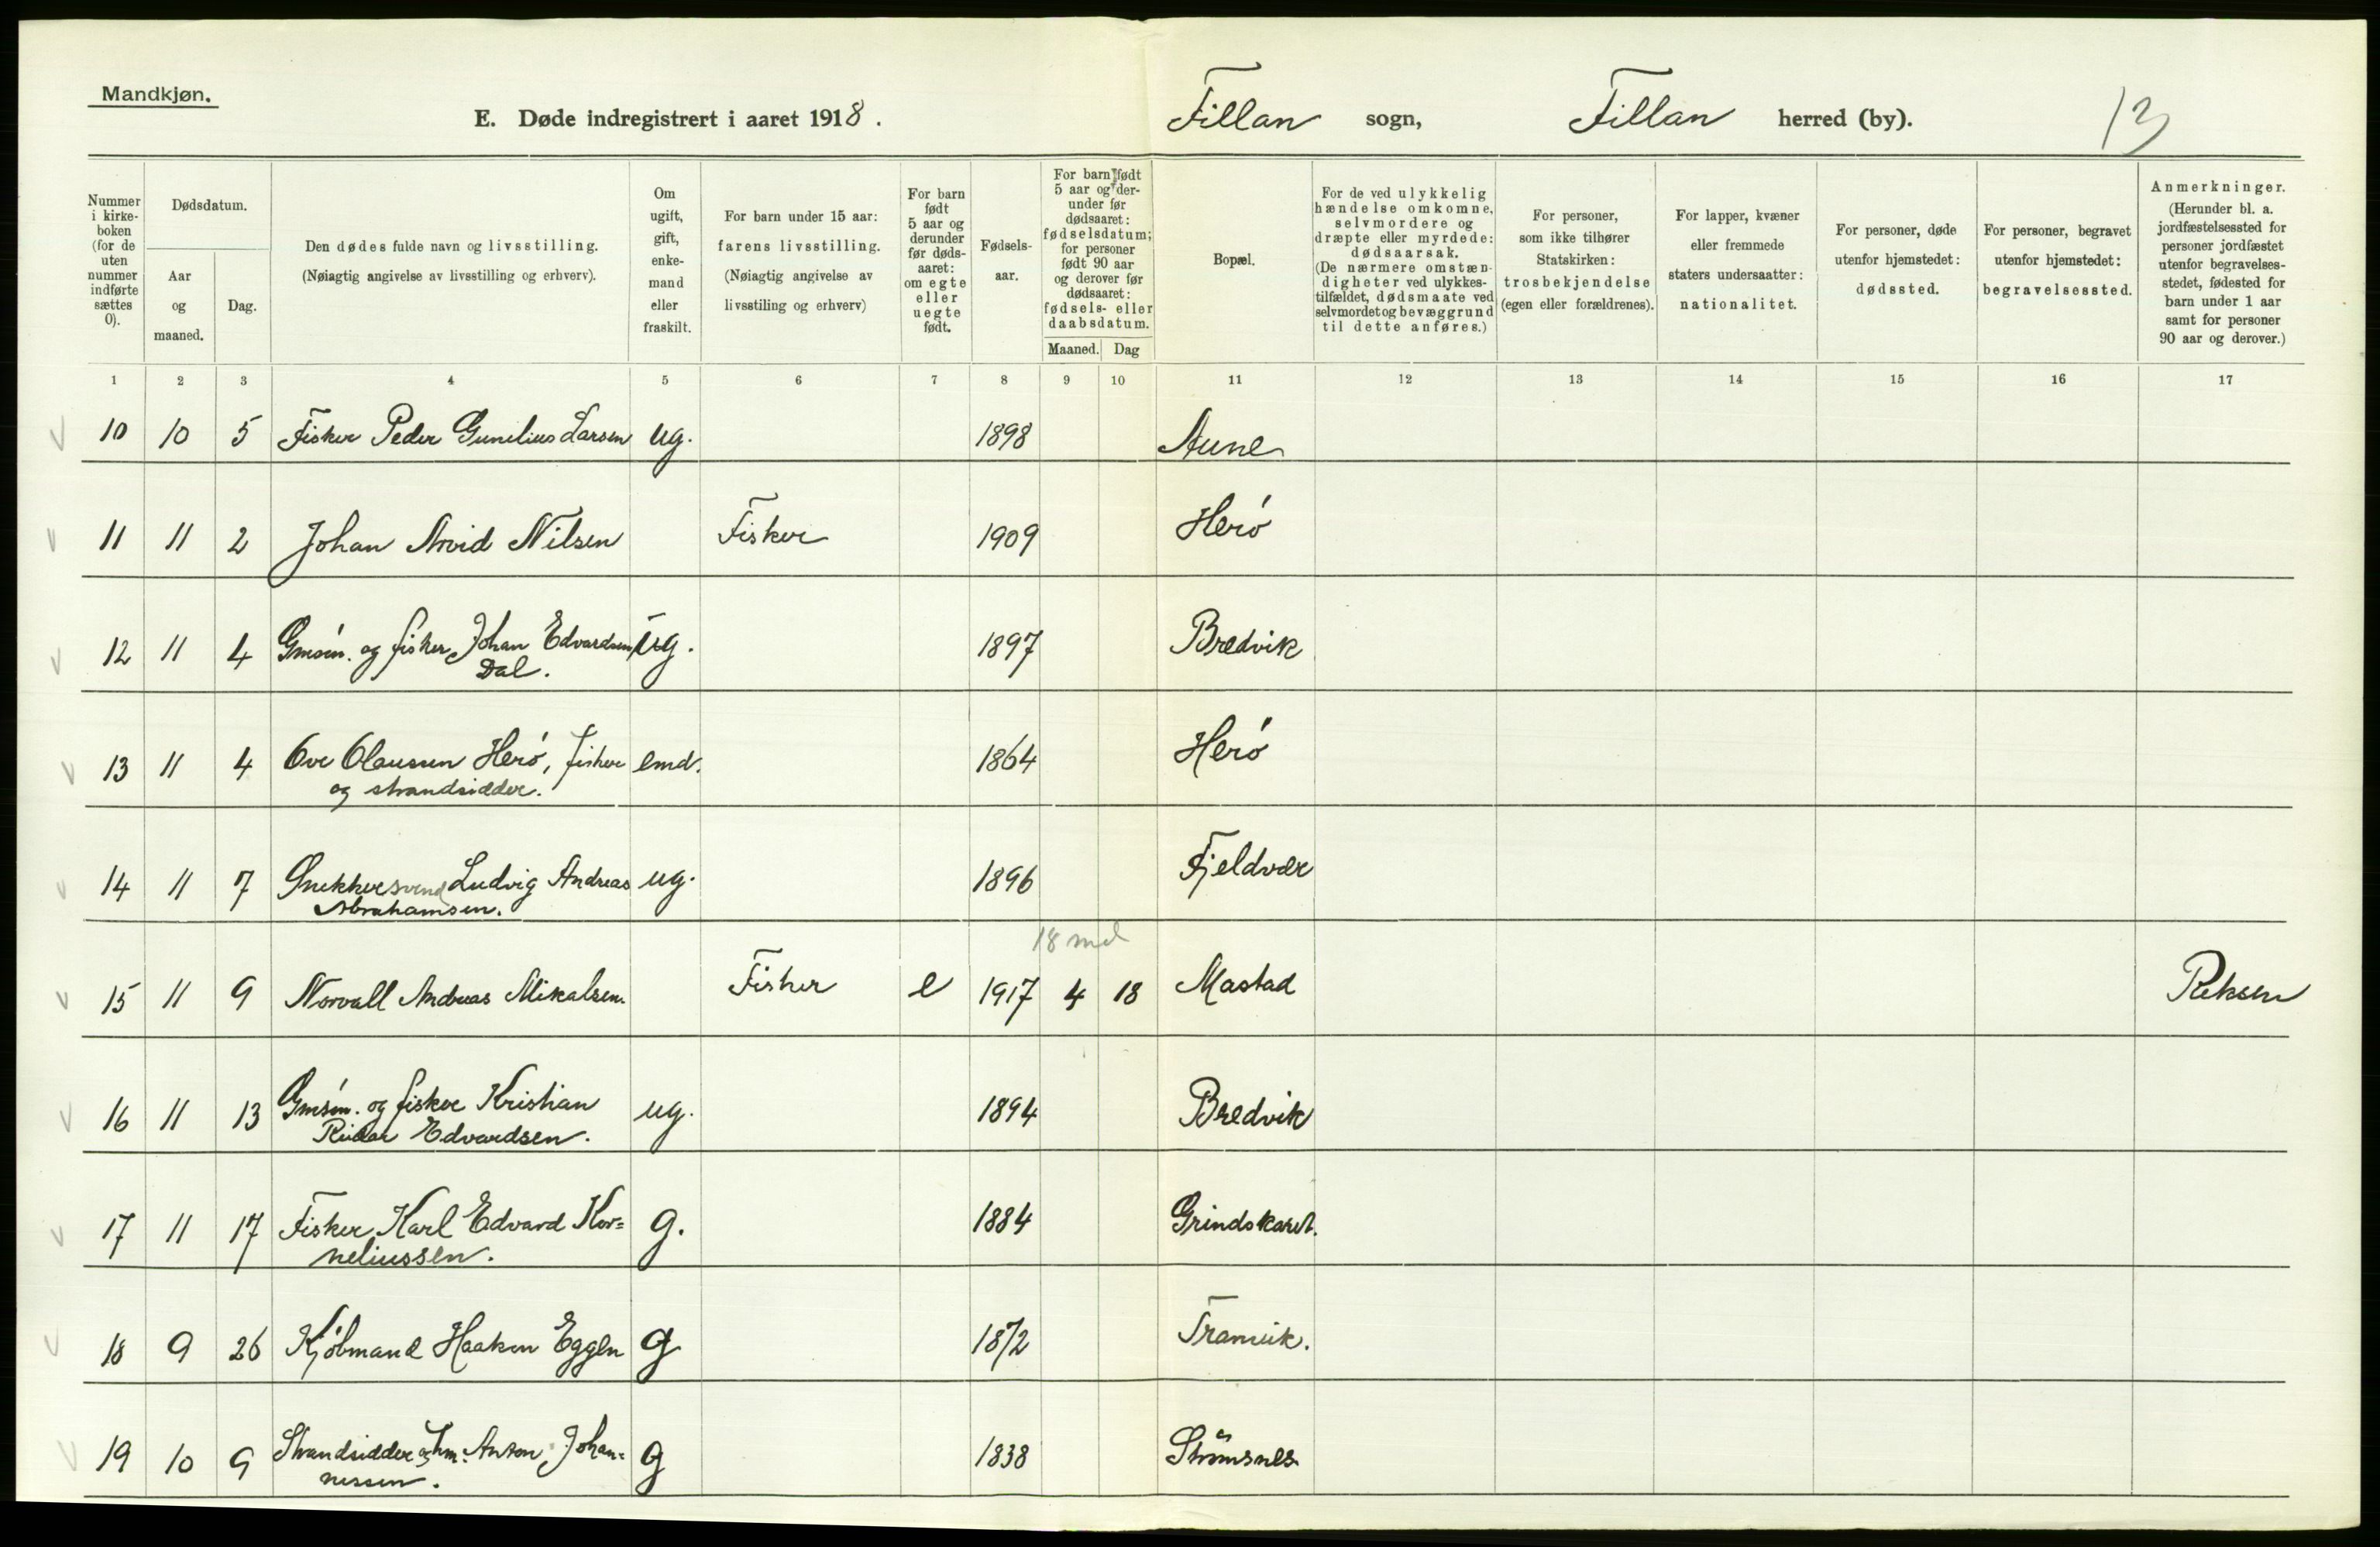 Mandkjøn.
E. Døde indregistrert i aaret 1918. Fillan sogn, Fillan herred (by). 13
Nummer i kirke-boken (for de uten nummer indførte sættes 0).
Dødsdatum.
Aar og maaned.
Dag.
Den dødes fulde navn og livsstilling.
(Nøiagtig angivelse av livsstilling og erhverv).
Om ugift, gift, enke-mand eller fraskilt.
For barn under 15 aar:
farens livsstilling.
(Nøiagtig angivelse av
livsstiling og erhverv)
For barn født 5 aar og derunder før døds-aaret: om egte eller uegte født.
Fødsels-aar.
For barn født 5 aar og der-under før dødsaaret: fødselsdatum; for personer født 90 aar og derover før dødsaaret: fødsels- eller daabsdatum.
Maaned. Dag
Bopæl.
For de ved ulykkelig hændelse omkomne, selvmordere og dræpte eller myrdede: dødsaarsak. (De nærmere omstæn-digheter ved ulykkes-tilfældet, dødsmaate ved selvmordet og bevæggrund til dette anføres.)
For personer, som ikke tilhører Statskirken: trosbekjendelse (egen eller forældrenes).
For lapper, kvæner eller fremmede staters undersaatter: nationalitet.
For personer, døde utenfor hjemstedet: dødssted.
For personer, begravet utenfor hjemstedet: begravelsessted.
Anmerkninger.
(Herunder bl. a. jordfæstelsessted for personer jordfæstet utenfor begravelses-stedet, fødested for barn under 1 aar samt for personer 90 aar og derover.)
1 2 3 4 5 6 7 8 9 10 11 12 13 14 15 16 17
10 10 5 Fisker Peder Gunelius Larsen ug. 1898 Aune
11 11 2 Johan Arvid Nilsen Fisker 1909 Herö
12 11 4 Gmsön. og fisker Johan Edvardsen ug. 1897 Bredvik
Dal.
13 11 4 Ove Olausen Herö, fisker emd. 1864 Herö
og strandsidder.
14 11 7 Snekkersvend Ludvig Andreas ug. 1896 Fjeldvær
Abrahamsen.
18 md
15 11 9 Norvall Andreas Mikalsen. Fisker e 1917 4 18 Mastad Reksen
16 11 13 Gmsön. og fisker Kristian ug. 1894 Bredvik
Edvardsen.
17 11 17 Fisker Karl Edvard Kor= g. 1884 Grindskaret.
neliussen.
18 9 26 Kjöbmand Haaken Eggen g 1872 Tranvik.
19 10 9 Strandsidder og Anton Johan= g 1838 Strömsnes
nessen.